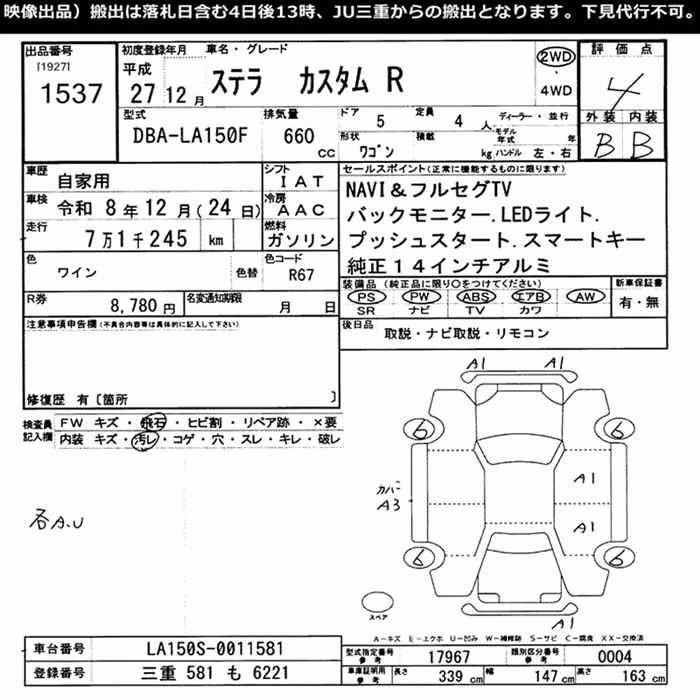 映像出品）搬出は落札日含む4日後13時、JU三重からの搬出となります。下見代行不可。
出品番号 初度登録年月 車名・グレード 評価点
[1927] 平成 ステラ カスタム R 2WD・4WD 4
1537 27 12月
型式 排気量 ドア 定員 ディーラー・並行 外装 内装
DBA-LA150F 660 cc 5 4 人 モデル年式 年 B B
形状 ワゴン 積載 kg ハンドル 左・右
車歴 自家用 シフト IAT セールスポイント(正常に機能するものに限ります)
車検 令和 8年12月(24日) 冷房 AAC NAVI＆フルセグTV
走行 7万1千245 km 燃料 ガソリン バックモニター.LEDライト.
色 ワイン 色替 色コード R67 プッシュスタート.スマートキー
純正14インチアルミ
R券 8,780円 名変通知期限 月 日 装備品(純正品に限り○をつけてください) 新車保証書
PS PW ABS エアB AW 有・無
SR ナビ TV カワ
注意事項申告欄(不具合内容等は具体的に記入して下さい) 後日品 取説・ナビ取説・リモコン
修復歴 有[箇所 ]
検査員記入欄 FW キズ・飛石・ヒビ割・リペア跡・×要
内装 キズ・汚レ・コゲ・穴・スレ・キレ・破レ
A1 A1
6 6
A1
カバー
A3
A1
各A.U
6 6
スペア
A1
A－キズ E－エクボ U－凹み W－補修跡 S－サビ C－腐食 XX－交換済
車台番号 LA150S-0011581 型式指定番号 参考 17967 類別区分番号 参考 0004
登録番号 三重 581 も 6221 車庫証明用 参考 長さ 339 cm 幅 147 cm 高さ 163 cm